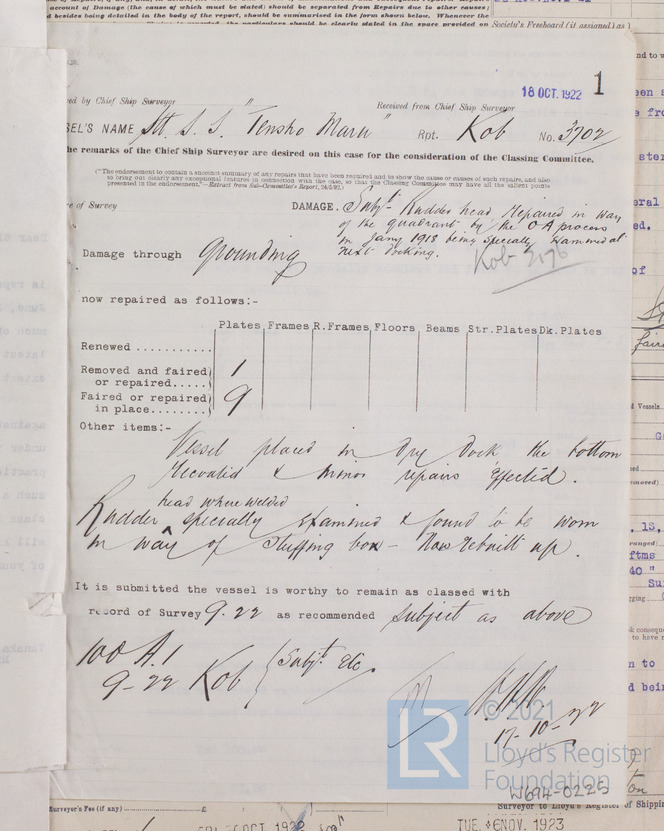 account of Damage (the cause of which must be stated) should be separated from Repairs due to other causes;
besides being detailed in the body of the report, should be summarised in the form shown below. Whenever the
Society's Freeboard (if assigned) as
18 OCT. 1922
1
ed by Chief Ship Surveyor "
Received from Chief Ship Surveyor
SEL'S NAME Stl S. S. Tensho Maru " Rpt. Kob No. 3702
he remarks of the Chief Ship Surveyor are desired on this case for the consideration of the Classing Committee.
("The endorsement to contain a succinct summary of any repairs that have been required and to show the cause or causes of such repairs, and also
to bring out clearly any exceptional features in connection with the case, so that the Classing Committee may have all the salient points
presented in the endorsement."—Extract from Sub-Committee's Report, 24/5/92.)
re of Survey
DAMAGE. Subjt. Rudder head, repaired in way
of the quadrant by the OA process
in Jany 1918 being specially examined at
next docking.
Kob 3176
Damage through grounding
now repaired as follows:-
Plates Frames R.Frames Floors Beams Str.Plates Dk.Plates
Renewed ...........
Removed and faired
or repaired..... 1
Faired or repaired
in place........ 9
Other items:-
Vessel placed in dry dock the bottom
recoated & minor repairs effected.
head where welded
Rudder ^ specially examined & found to be worn
in way of stuffing box - now rebuilt up.
It is submitted the vessel is worthy to remain as classed with
record of Survey 9.22 as recommended subject as above
100 A.1
9-22 Kob { Subjt. etc
17-10-22
LR
© 2021
Lloyd's Register
Foundation
W694-0225
Surveyor's Fee (if any)
Surveyor to Lloyd's Register of Shipping
TUE. 6 NOV. 1923